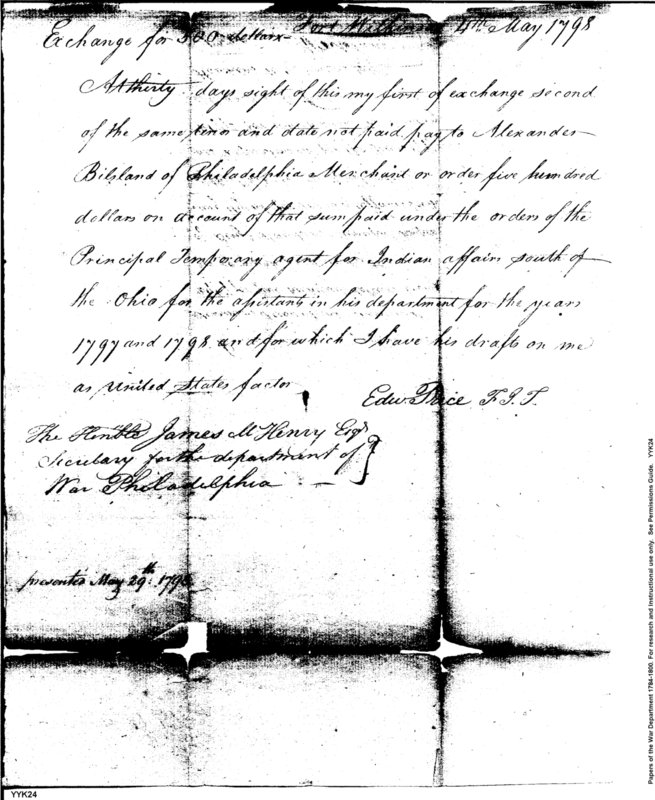 Exchange for 500 dollars - Fort Wilkinson 4th May 1798
At thirty days sight of this my first of exchange second
of the same tenor and date not paid pay to Alexander
Bilsland of Philadelphia Merchant or order five hundred
dollars on account of that sum paid under the orders of the
Principal Temporary agent for Indian affairs south of
the Ohio for the assistants in his department for the years
1797 and 1798 and for which I have his draft on me
as United States factor
Edwd Price F.I.T.
The Honble James McHenry Esqr
Secretary for the department of
War Philadelphia -
presented May 29th 1798
YYK24
Papers of the War Department 1784-1800. For research and instructional use only. See Permissions Guide. YYK24